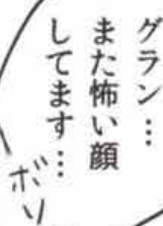 グラン…
また怖い顔
してます…
ボソ